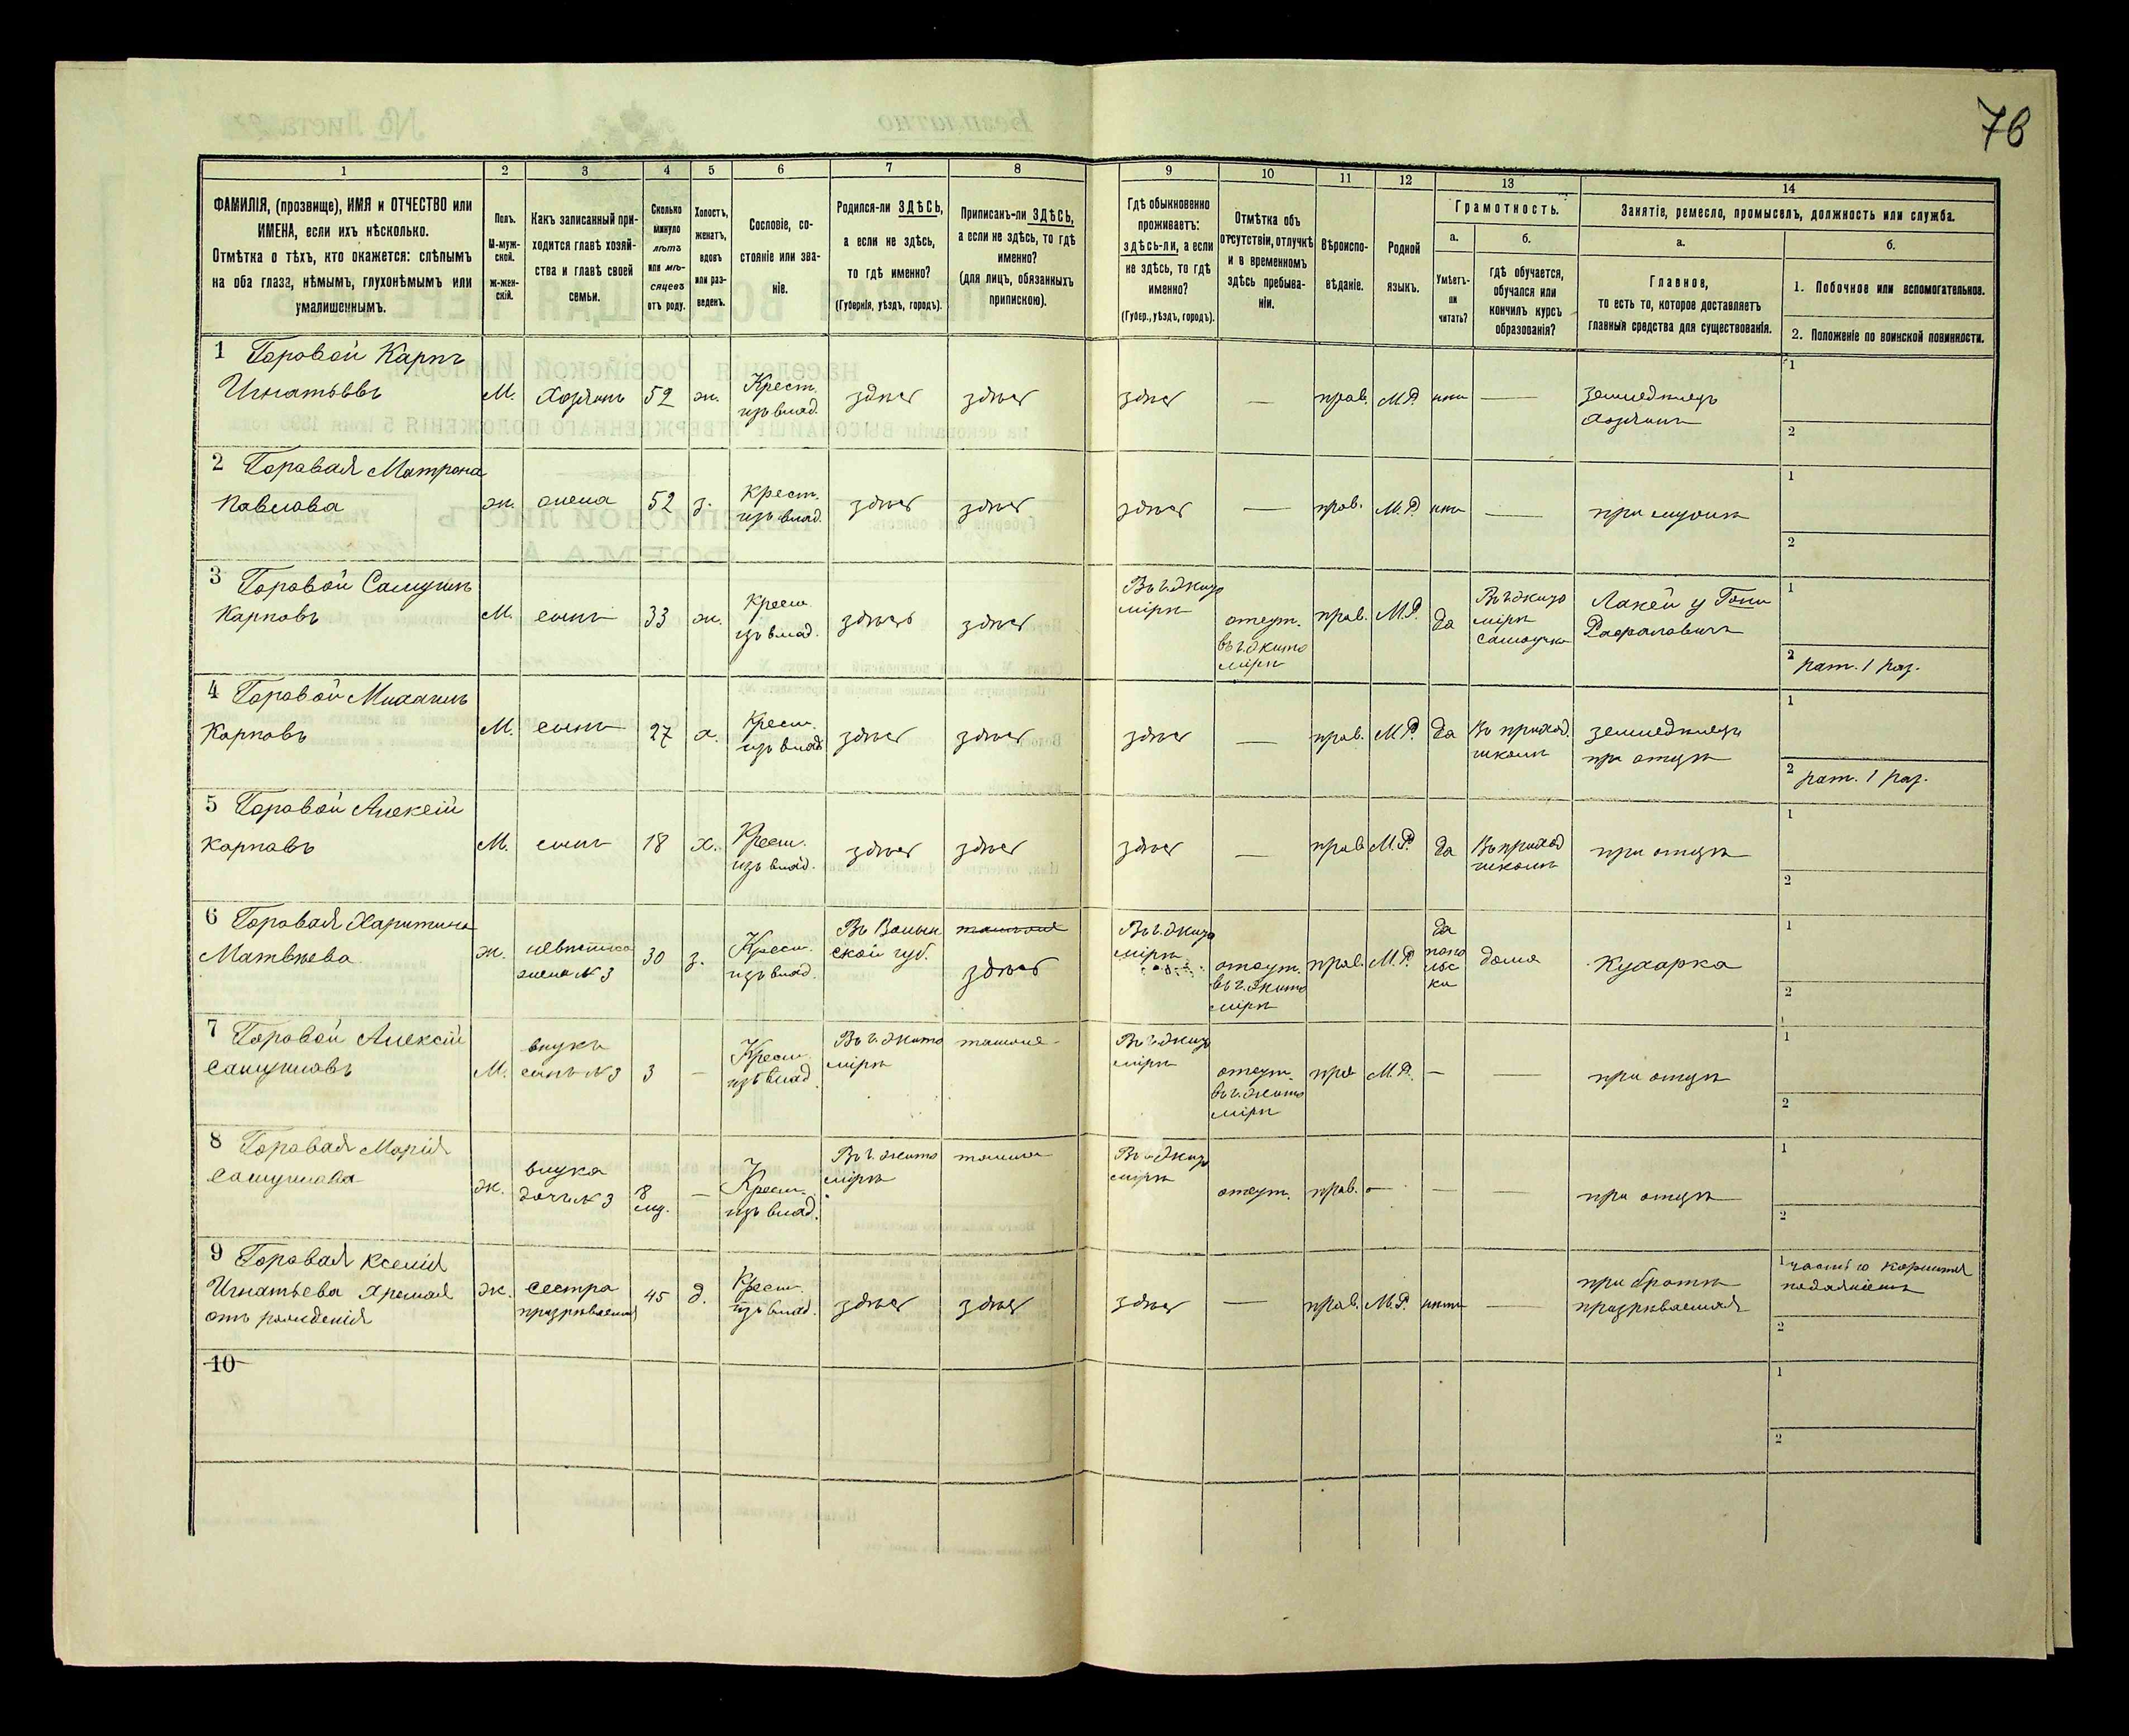 76
1 2 3 4 5 6 7 8 9 10 11 12 13 14
ФАМИЛІЯ, (прозвище), ИМЯ и ОТЧЕСТВО или
ИМЕНА, если ихъ нѣсколько.
Отмѣтка о тѣхъ, кто окажется: слѣпымъ
на оба глаза, нѣмымъ, глухонѣмымъ или
умалишеннымъ.
Полъ.
М-муж-
ской.
Ж-жен-
скій.
Какъ записанный при-
ходится главѣ хозяй-
ства и главѣ своей
семьи.
Сколько
минуло
лѣтъ
или мѣ-
сяцевъ
отъ роду.
Холостъ,
женатъ,
вдовъ
или раз-
веденъ.
Сословіе, со-
стояніе или зва-
ніе.
Родился-ли ЗДѢСЬ,
а если не здѣсь,
то гдѣ именно?
(Губернія, уѣздъ, городъ).
Приписанъ-ли ЗДѢСЬ,
а если не здѣсь, то гдѣ
именно?
(для лицъ, обязанныхъ
припискою).
Гдѣ обыкновенно
проживаетъ:
здѣсь-ли, а если
не здѣсь, то гдѣ
именно?
(Губер., уѣздъ, городъ).
Отмѣтка объ
отсутствіи, отлучкѣ
и о временномъ
здѣсь пребыва-
ніи.
Вѣроиспо-
вѣданіе.
Родной
языкъ.
Грамотность.
а.
Умѣетъ-
ли
читать?
б.
гдѣ обучается,
обучался или
кончилъ курсъ
образованія?
Занятіе, ремесло, промыселъ, должность или служба.
а.
Главное,
то есть то, которое доставляетъ
главныя средства для существованія.
б.
1. Побочное или вспомогательное.
2. Положеніе по воинской повинности.
1 Боровой Карпъ
Игнатьевъ
М.
Хозяинъ
52
ж.
Крест.
изъ влад.
здѣсь
здѣсь
здѣсь
—
прав.
М.Р.
нѣт
—
земледѣлецъ
хозяинъ
1
2
2 Боровая Матрона
Павлова
ж.
жена
52
з.
Крест.
изъ влад.
здѣсь
здѣсь
здѣсь
—
прав.
М.Р.
нѣт
—
при мужѣ
1
2
3 Боровой Самуилъ
Карповъ
М.
сынъ
33
ж.
Крест.
изъ влад.
здѣсь
здѣсь
Въ г. Жито
мірѣ
отсут.
въ г. Жито
мірѣ
прав.
М.Р.
да
Въ г. Жито
мірѣ
самоучка
Лакей у
1
2 рат. 1 раз.
4 Боровой Михаилъ
Карповъ
М.
сынъ
27
х.
Крест.
изъ влад.
здѣсь
здѣсь
здѣсь
—
прав.
М.Р.
да
Въ приход.
школѣ
земледѣлецъ
при отцѣ
1
2 рат. 1 раз.
5 Боровой Алексій
Карповъ
М.
сынъ
18
х.
Крест.
изъ влад.
здѣсь
здѣсь
здѣсь
—
прав.
М.Р.
да
Въ приход
школѣ
при отцѣ
1
2
6 Боровая Харитина
Матвѣева
ж.
невѣстка
жена № 3
30
з.
Крест.
изъ влад.
Въ Волын
ской губ.
здѣсь
Въ г. Жито
мірѣ
отсут.
въ г. Жито
мірѣ
прав.
М.Р.
да
попо
льс
ки
дома
Кухарка
1
2
7 Боровой Алексій
Самуиловъ
М.
внукъ
сынъ № 3
3
—
Крест.
изъ влад.
Въ г. Жито
мірѣ
тамъ же
Въ г. Жито
мірѣ
отсут.
въ г. Жито
мірѣ
прав
М.Р.
—
—
при отцѣ
1
2
8 Боровая Марія
Самуилова
ж.
внука
дочь № 3
8
мѣ.
—
Крест.
изъ влад.
Въ г. Жито
мірѣ
тамъ же
Въ г. Жито
мірѣ
отсут.
прав.
—
—
—
при отцѣ
1
2
9 Боровая Ксенія
Игнатьева Хромая
отъ рожденія
ж.
сестра
призрѣваемая
45
д.
Крест.
изъ влад.
здѣсь
здѣсь
здѣсь
—
прав.
М.Р.
нѣтъ
—
при братѣ
призрѣваемая
1 частью кормится
подаяніемъ
2
10
1
2